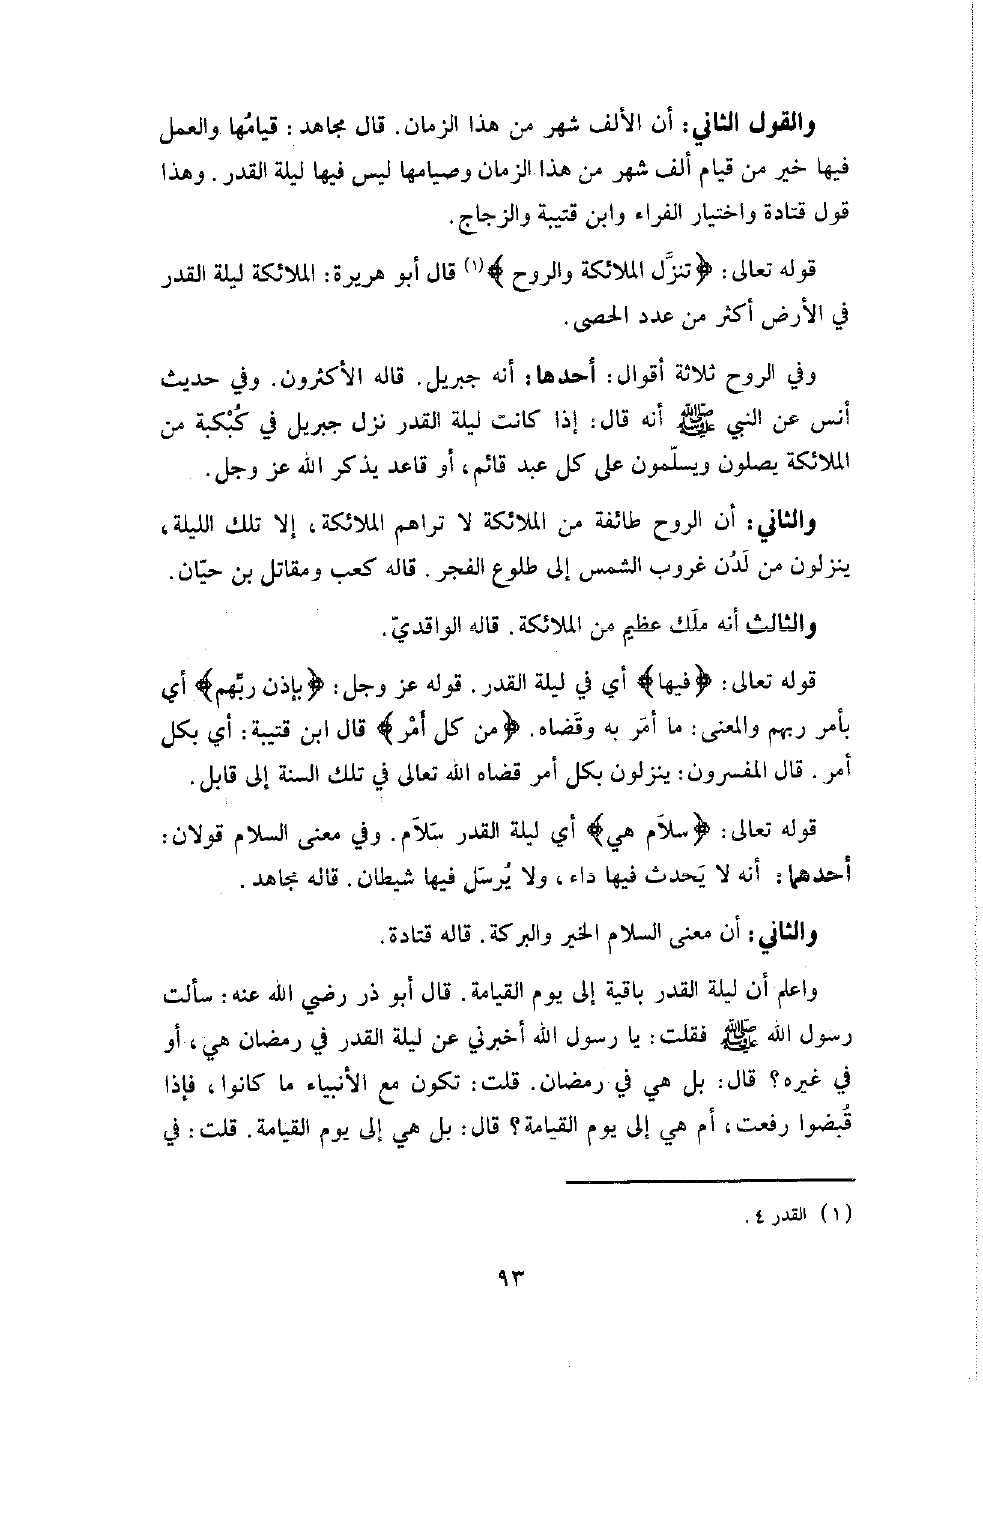 والقول الثاني: أن الألف شهر من هذا الزمان. قال مجاهد: قيامُها والعمل
فيها خير من قيام ألف شهر من هذا الزمان وصيامها ليس فيها ليلة القدر. وهذا
قول قتادة واختيار الفراء وابن قتيبة والزجاج.
قوله تعالى: ﴿تنزَّل الملائكة والروح﴾(١) قال أبو هريرة: الملائكة ليلة القدر
في الأرض أكثر من عدد الحصى.
وفي الروح ثلاثة أقوال: أحدها: أنه جبريل. قاله الأكثرون. وفي حديث
أنس عن النبي ﷺ أنه قال: إذا كانت ليلة القدر نزل جبريل في كُبْكبة من
الملائكة يصلون ويسلّمون على كل عبد قائم، أو قاعد يذكر الله عز وجل.
والثاني: أن الروح طائفة من الملائكة لا تراهم الملائكة، إلا تلك الليلة،
ينزلون من لَدُن غروب الشمس إلى طلوع الفجر. قاله كعب ومقاتل بن حيّان.
والثالث أنه ملَك عظيم من الملائكة. قاله الواقديّ.
قوله تعالى: ﴿فيها﴾ أي في ليلة القدر. قوله عز وجل: ﴿بإذن ربّهم﴾ أي
بأمر ربهم والمعنى: ما أمَر به وقَضاه. ﴿من كل أمْر﴾ قال ابن قتيبة: أي بكل
أمر. قال المفسرون: ينزلون بكل أمر قضاه الله تعالى في تلك السنة إلى قابل.
قوله تعالى: ﴿سلاَم هي﴾ أي ليلة القدر سَلاَم. وفي معنى السلام قولان:
أحدهما: أنه لا يَحدث فيها داء، ولا يُرسَل فيها شيطان. قاله مجاهد.
والثاني: أن معنى السلام الخير والبركة. قاله قتادة.
واعلم أن ليلة القدر باقية إلى يوم القيامة. قال أبو ذر رضي الله عنه: سألت
رسول الله ﷺ فقلت: يا رسول الله أخبرني عن ليلة القدر في رمضان هي، أو
في غيره؟ قال: بل هي في رمضان. قلت: تكون مع الأنبياء ما كانوا، فإذا
قُبضوا رفعت، أم هي إلى يوم القيامة؟ قال: بل هي إلى يوم القيامة. قلت: في
(١) القدر ٤.
٩٣